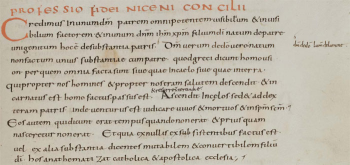 PROFESSIO FIDEI NICENI CONCILII
Credimus in unum dm̄ patrem omnipotentem uisibilium & inuisi
bilium factorem & in unum dn̄m ihm xpm filium dī natum de patre
unigenitum hoc ē de substantia patris. Dm̄ uerum de dō uero natum
non factum unius substantiae cum patre quod greci dicunt homousi
on per quem omnia facta sunt siue quae in caelo siue quae in terra.
qui propter nos homines & propter nostram salutem descendit & in
carnatus est homo factus passus est Ascendit in caelos sed & ad dex
teram patris inde uenturus est iudicare uiuos & mortuos & in spm scm̄
Eos autem qui dicunt erat tempus quando non erat & priusquam
nasceretur non erat Et quia ex nullis exsubsistentibus factus est
uel ex alia substantia dicentes mutabilem & conuertibilem filiu
dī hos anathematizat catholica & apostolica ecclesia